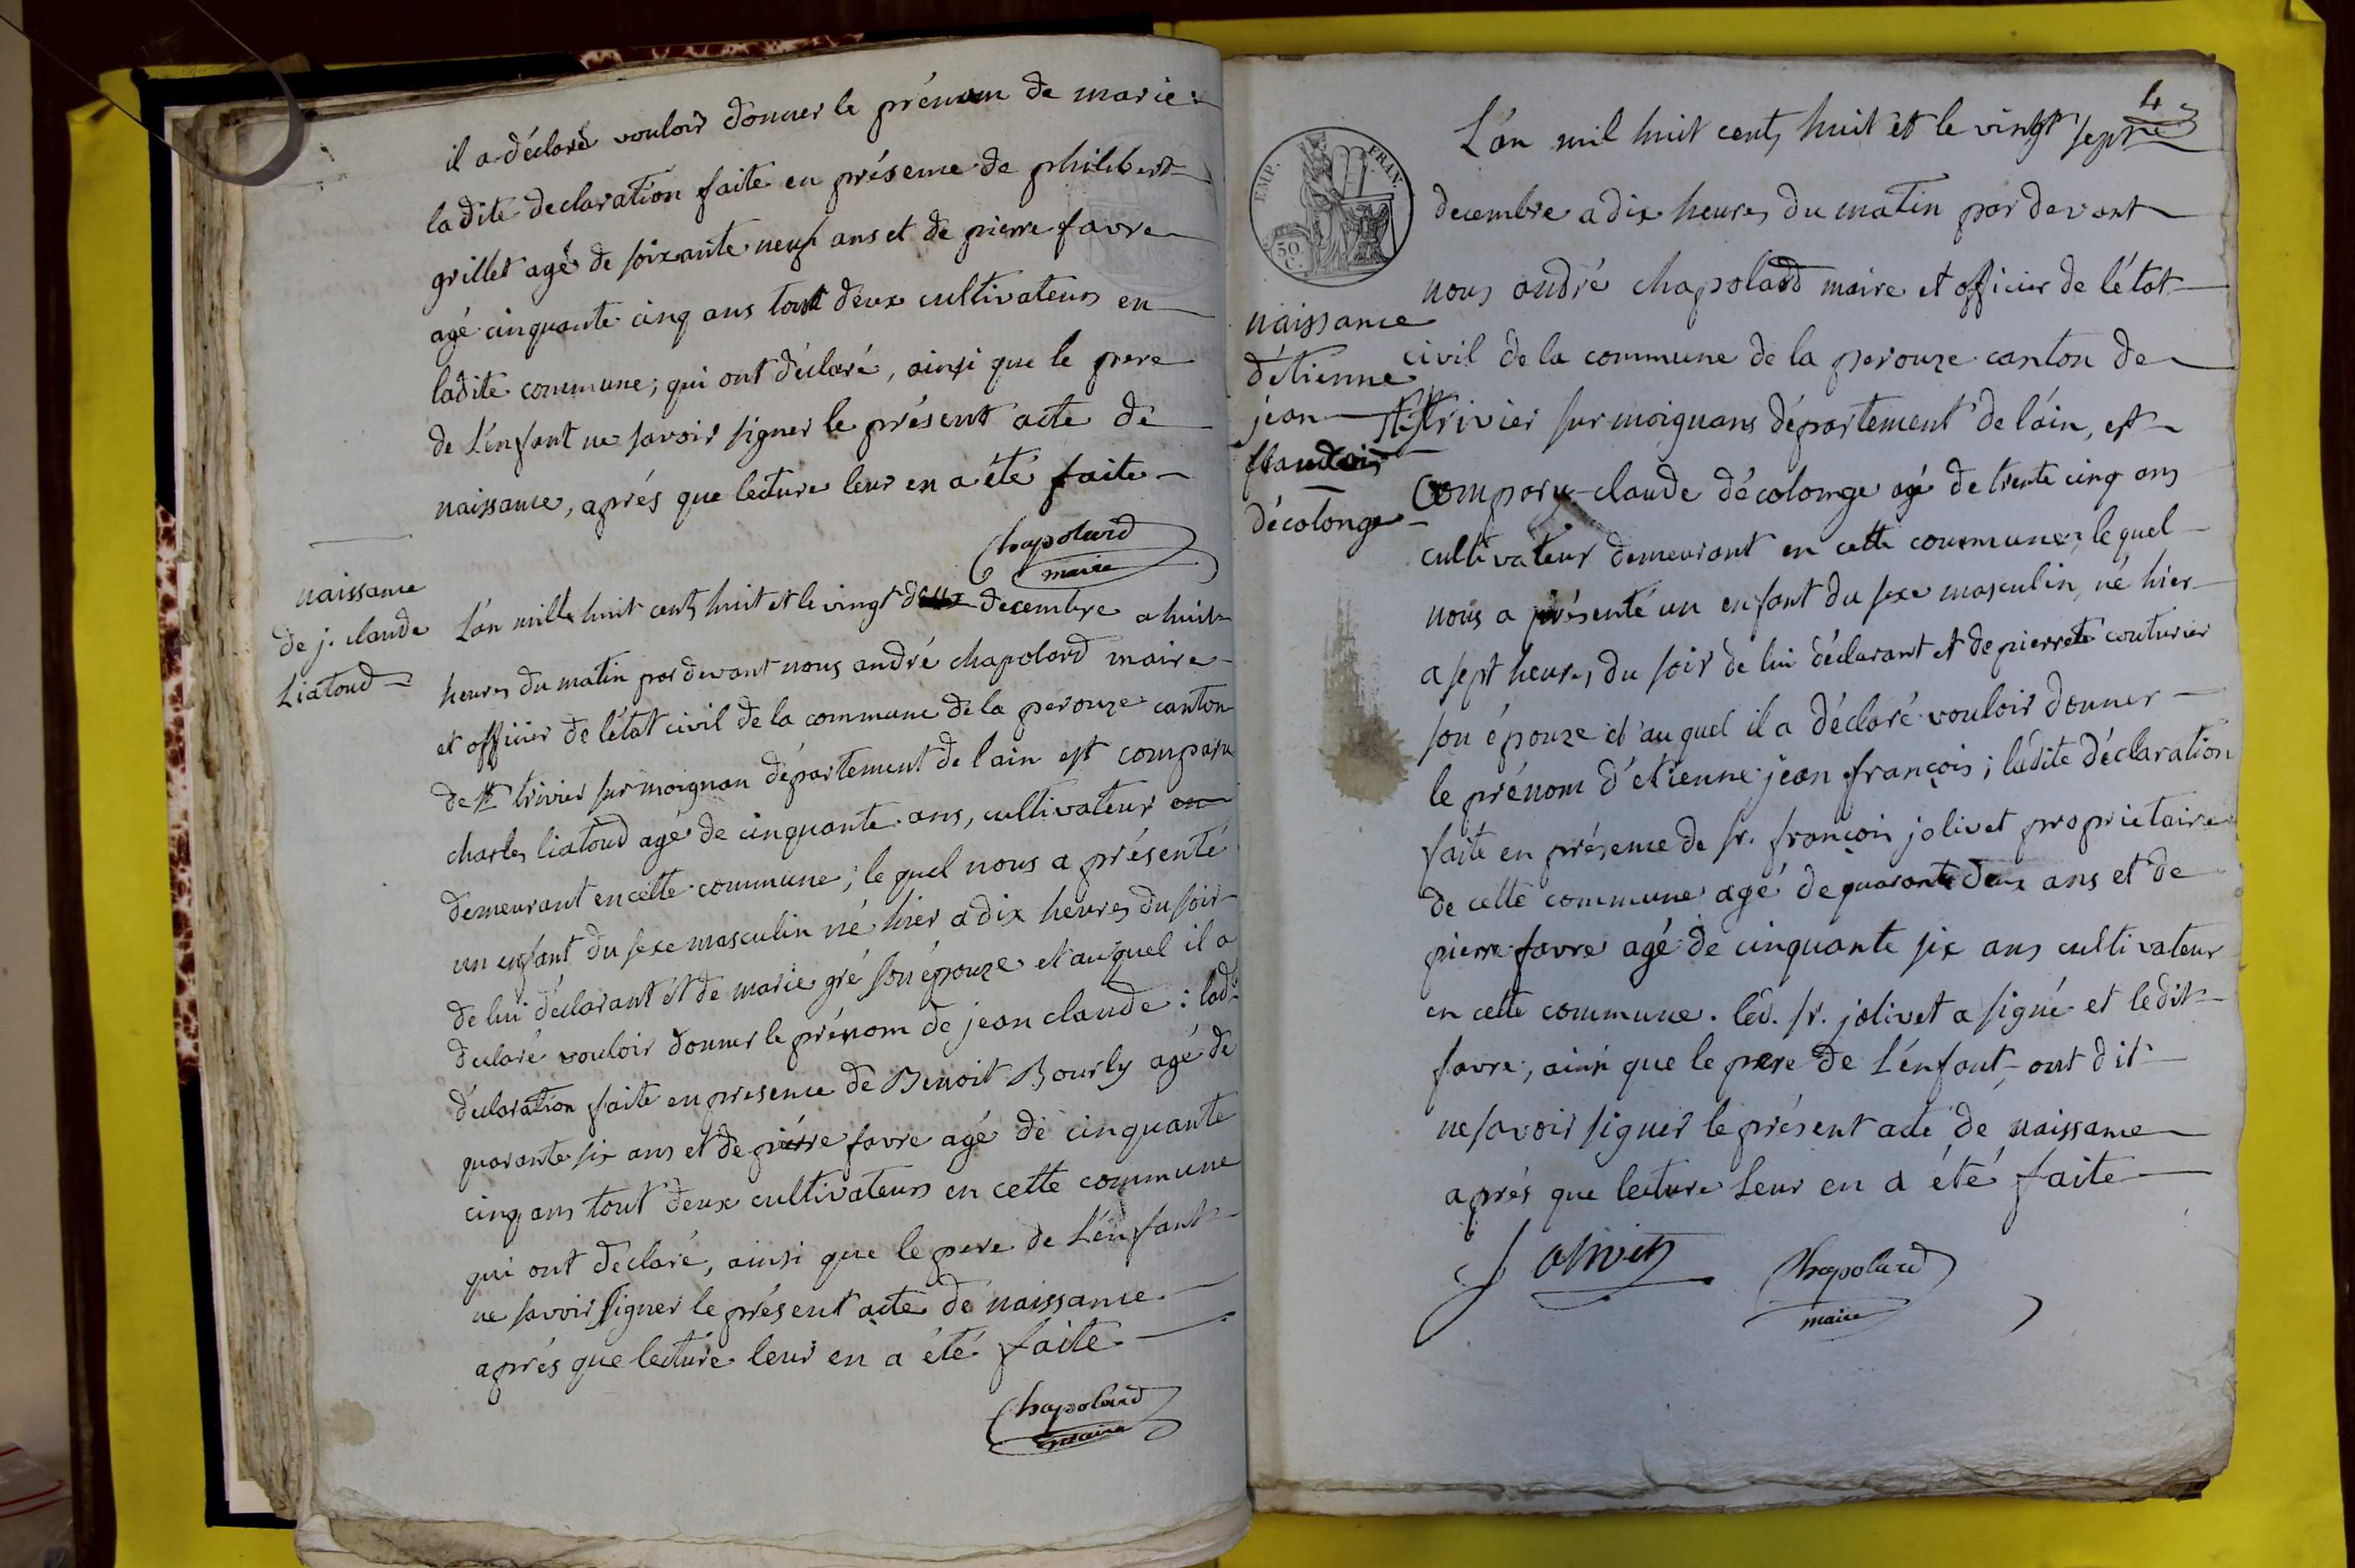 il a déclaré vouloir donner le prénom de marie :
ladite declaration faite en présence de philibert
grillet agé de soixante neuf ans et de pierre favre
agé cinquante cinq ans tout deux cultivateurs en
ladite commune; qui ont déclaré, ainsi que le pere
de l'enfant ne savoir signer le présent acte de
naissance, aprés que lecture leur en a été faite
Chapolard
maire
naissance
de j. claude
Liatoud
L'an mille huit cents huit et le vingt deux decembre a huit
heures du matin par devant nous andré chapolard maire
et officier de l'état civil de la commune de la perouze canton
de st trivier sur moignan département de l'ain est comparu
charles liatoud agé de cinquante ans, cultivateur en
demeurant en cette commune; le quel nous a présenté
un enfant du sexe masculin né hier a dix heures du soir
de lui déclarant et de marie gré son épouze et auquel il a
déclaré vouloir donner le prénom de jean claude : lad.
déclaration faite en presence de Benoit Bourly agé de
quarante six ans et de pierre favre agé de cinquante
cinq ans tout deux cultivateurs en cette commune
qui ont déclaré, ainsi que le pere de l'enfant
ne savoir signer le présent acte de naissance
aprés que lecture leur en a été faite
Chapolard
maire
4
EMP. FRAN.
50
C.
naissance
d'étienne
jean
décolonge
L'an mil huit cents huit et le vingt sept
decembre a dix heures du matin par devant
nous andré chapolard maire et officier de l'état
civil de la commune de la perouze canton de
st trivier sur moignans département de l'ain, est
Comparu claude décolonge agé de trente cinq ans
cultivateur demeurant en cette commune, le quel
nous a présenté un enfant du sexe masculin, né hier
a sept heures du soir de lui déclarant et de pierrette couturier
son épouze et au quel il a déclaré vouloir donner
le prénom d'étienne jean françois; ladite déclaration
faite en présence de sr. françois jolivet proprietaire
de cette commune agé de quarante deux ans et de
pierre favre agé de cinquante six ans cultivateur
en cette commune. led. sr. jolivet a signé et ledit
favre, ainsi que le pere de l'enfant, ont dit
ne savoir signer le présent acte de naissance
aprés que lecture leur en a été faite
Jolivet
Chapolard
maire